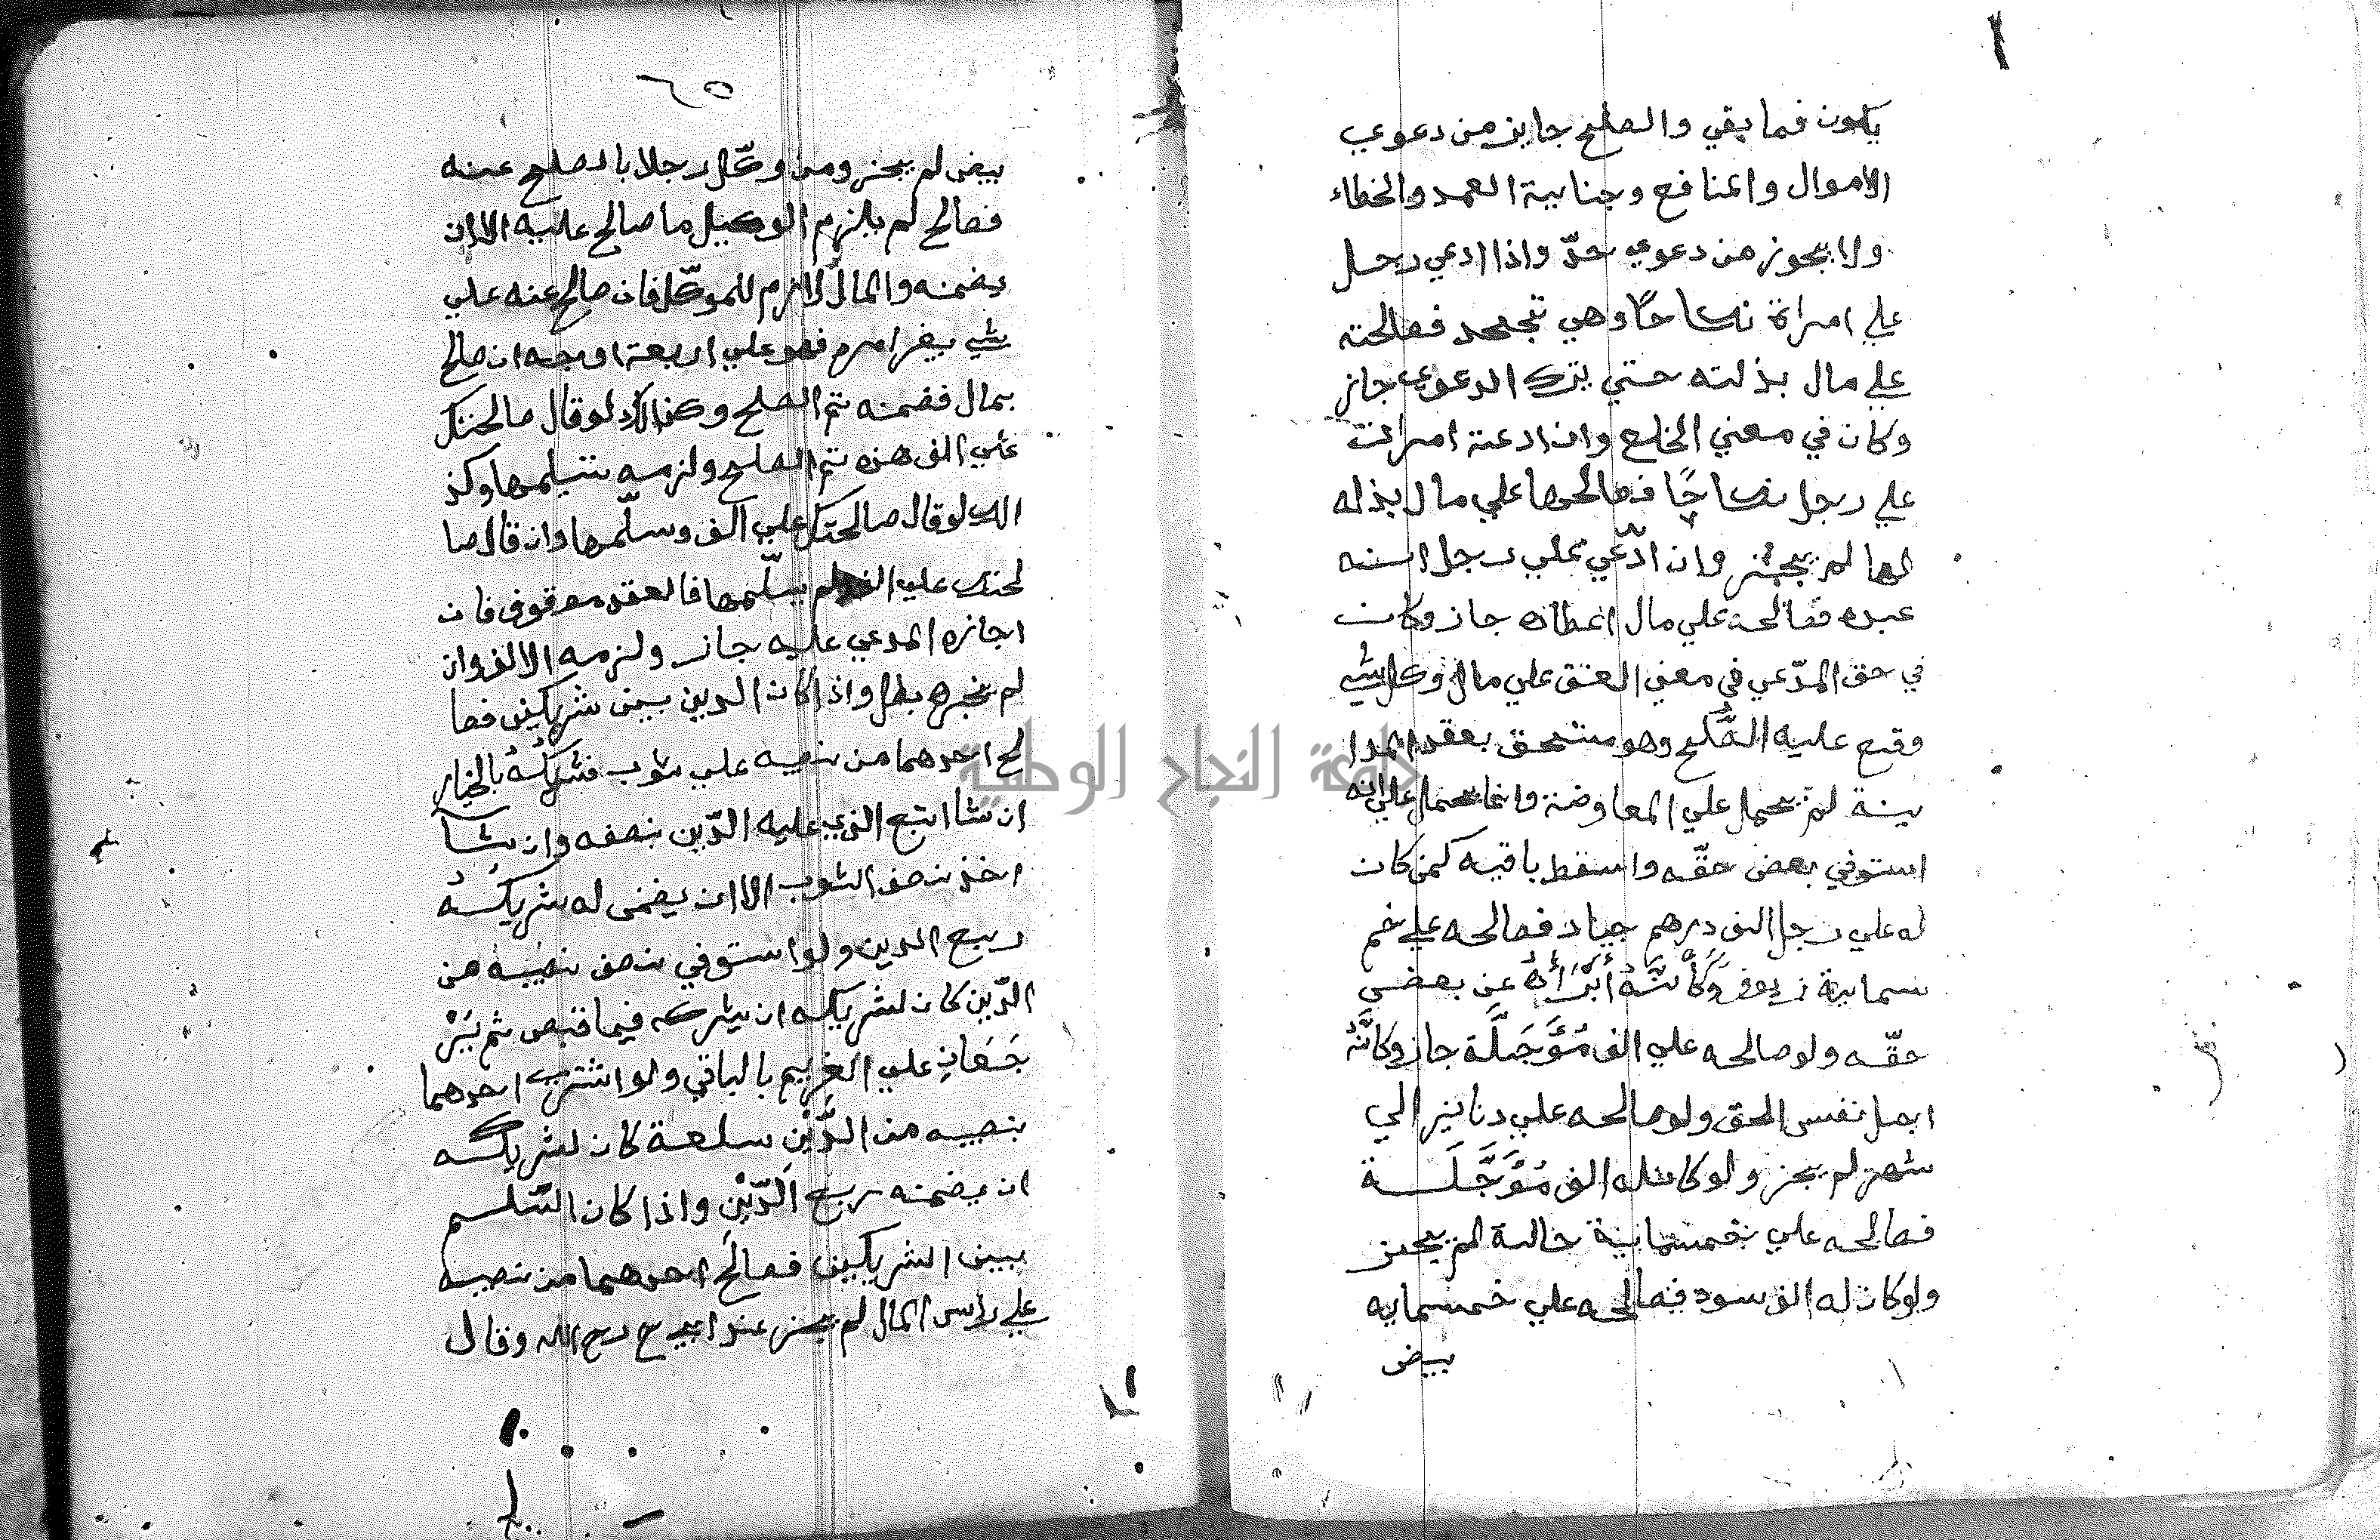 يكون فما بقي والصلح جايز من دعوي
الاموال والمنافع وجناية العمد والخطاء
ولا يجوز من دعوي حدّ واذا ادعي رجل
علي امراة نكاحًا وهي تجحد فصالحته
علي مال بذلته حتي يترك الدعوي جاز
وكان في معني الخلع وان ادعته امرات
علي رجل نكاحًا فصالحها علي مال بذله
لها لم يجز وان ادّعي علي رجل انه
عبده فصالحه علي مال اعطاه جاز وكان
في حق المدّعي في معني العتق علي مال وكل شي
وقع عليه الصُّلح وهو مستحق بعقد المدا
ينة لم يحمل علي المعاوضة وانما يحمل علي انه
استوفي بعض حقّه واسقط باقيه كمن كان
له علي رجل الف درهم جياد فصالحه علي خم
سماية زيوف وَكَأَنَّهُ أَبْرَأَهُ عن بعض
حقّه ولو صالحه علي الف مُؤَجَلَّة جاز وكانَّهُ
اجل نفس الحق ولو صالحه علي دنانير الي
شهر لم يجز ولو كانت له الف مُؤَجَّلَة
فصالحه علي خمسماية حالة لم يجز
ولو كان له الف سود فصالحه علي خمسمايه
بيض
٦٥
بيض لم يجز ومن وكّل رجلا بالصلح عنه
فصالح لم يلزم الوكيل ما صالح عليه الا ان
يضمنه والمال لازم للموكّل فان صالح عنه علي
شي بغير امره فهو علي اربعة اوجه ان صالح
بمال فضمنه تم الصلح وكذالك لو قال صالحتك
علي الف هذه تم الصلح ولزمه تسليمها وكذ
الك لو قال صالحتك علي الف وسلّمها وان قال صا
لحتك علي الف ولم يسلّمها فالعقد موقوف فان
اجازه المدعي عليه جاز ولزمه الالف وان
لم يجزه بطل واذا كان الدين بين شريكين فصا
لح احدهما من نصيبه علي ثوب فشريكُهُ بالخيار
ان شا اتبع الذي عليه الدّين بنصفه وان شآ
اخذ نصف الثوب الا ان يضمن له شريكُهُ
ربع الدين ولو استوفي نصف نصيبه من
الدّين كان لشريكه ان يشركه فيما قبض ثم يَرْ
جَعَانِ علي الغريم بالباقي ولو اشتري احدهما
بنصيبه من الدَّيْن سلعة كان لشريكه
ان يضمنه ربع الدّيْن واذا كان السَّلم
بين الشريكين فصالح احدهما من نصيبه
علي راس المال لم يجز عند ابي ح رح الله وقال
جامعة النجاح الوطنية